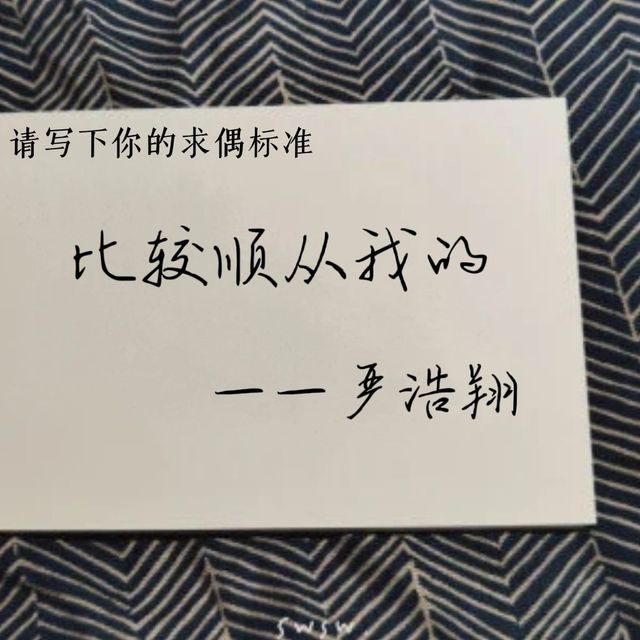 请写下你的求偶标准
比较顺从我的
——严浩翔
swsw.